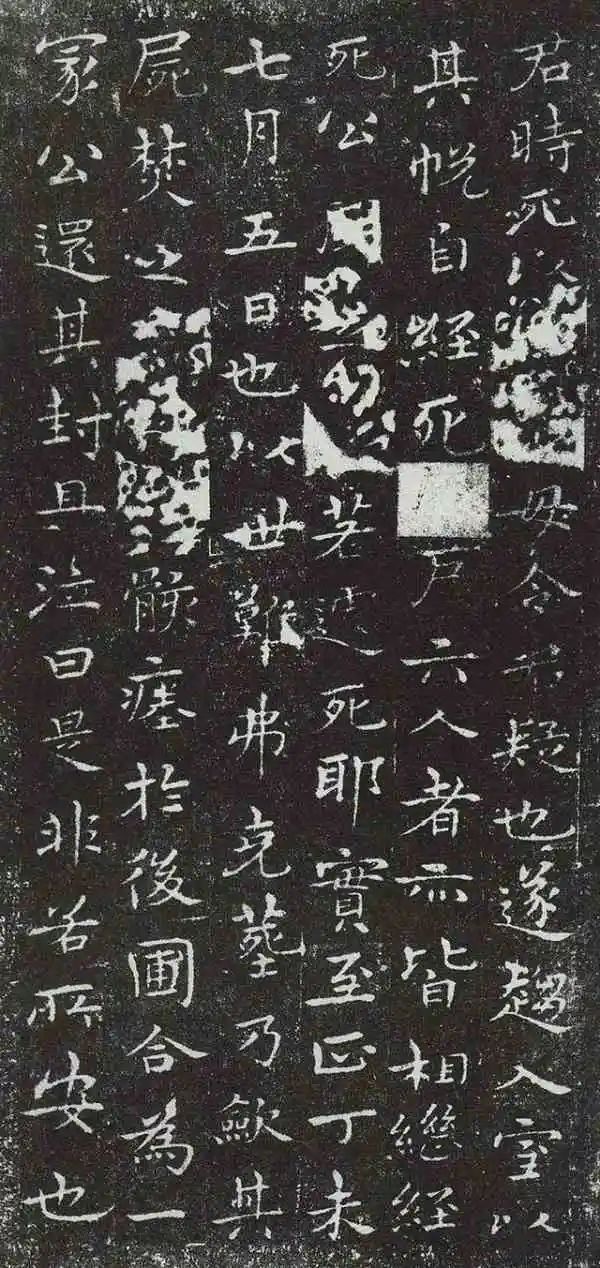 君時死以母令君疑也遂趨入室以
其帨自經死戶六人者亦皆相繼經
死公若遽死耶實至正丁未
七月五日也以世難弗克塟乃斂其
屍焚之骸瘞於後圃合為一
冢公還其封且泣曰是非若所安也